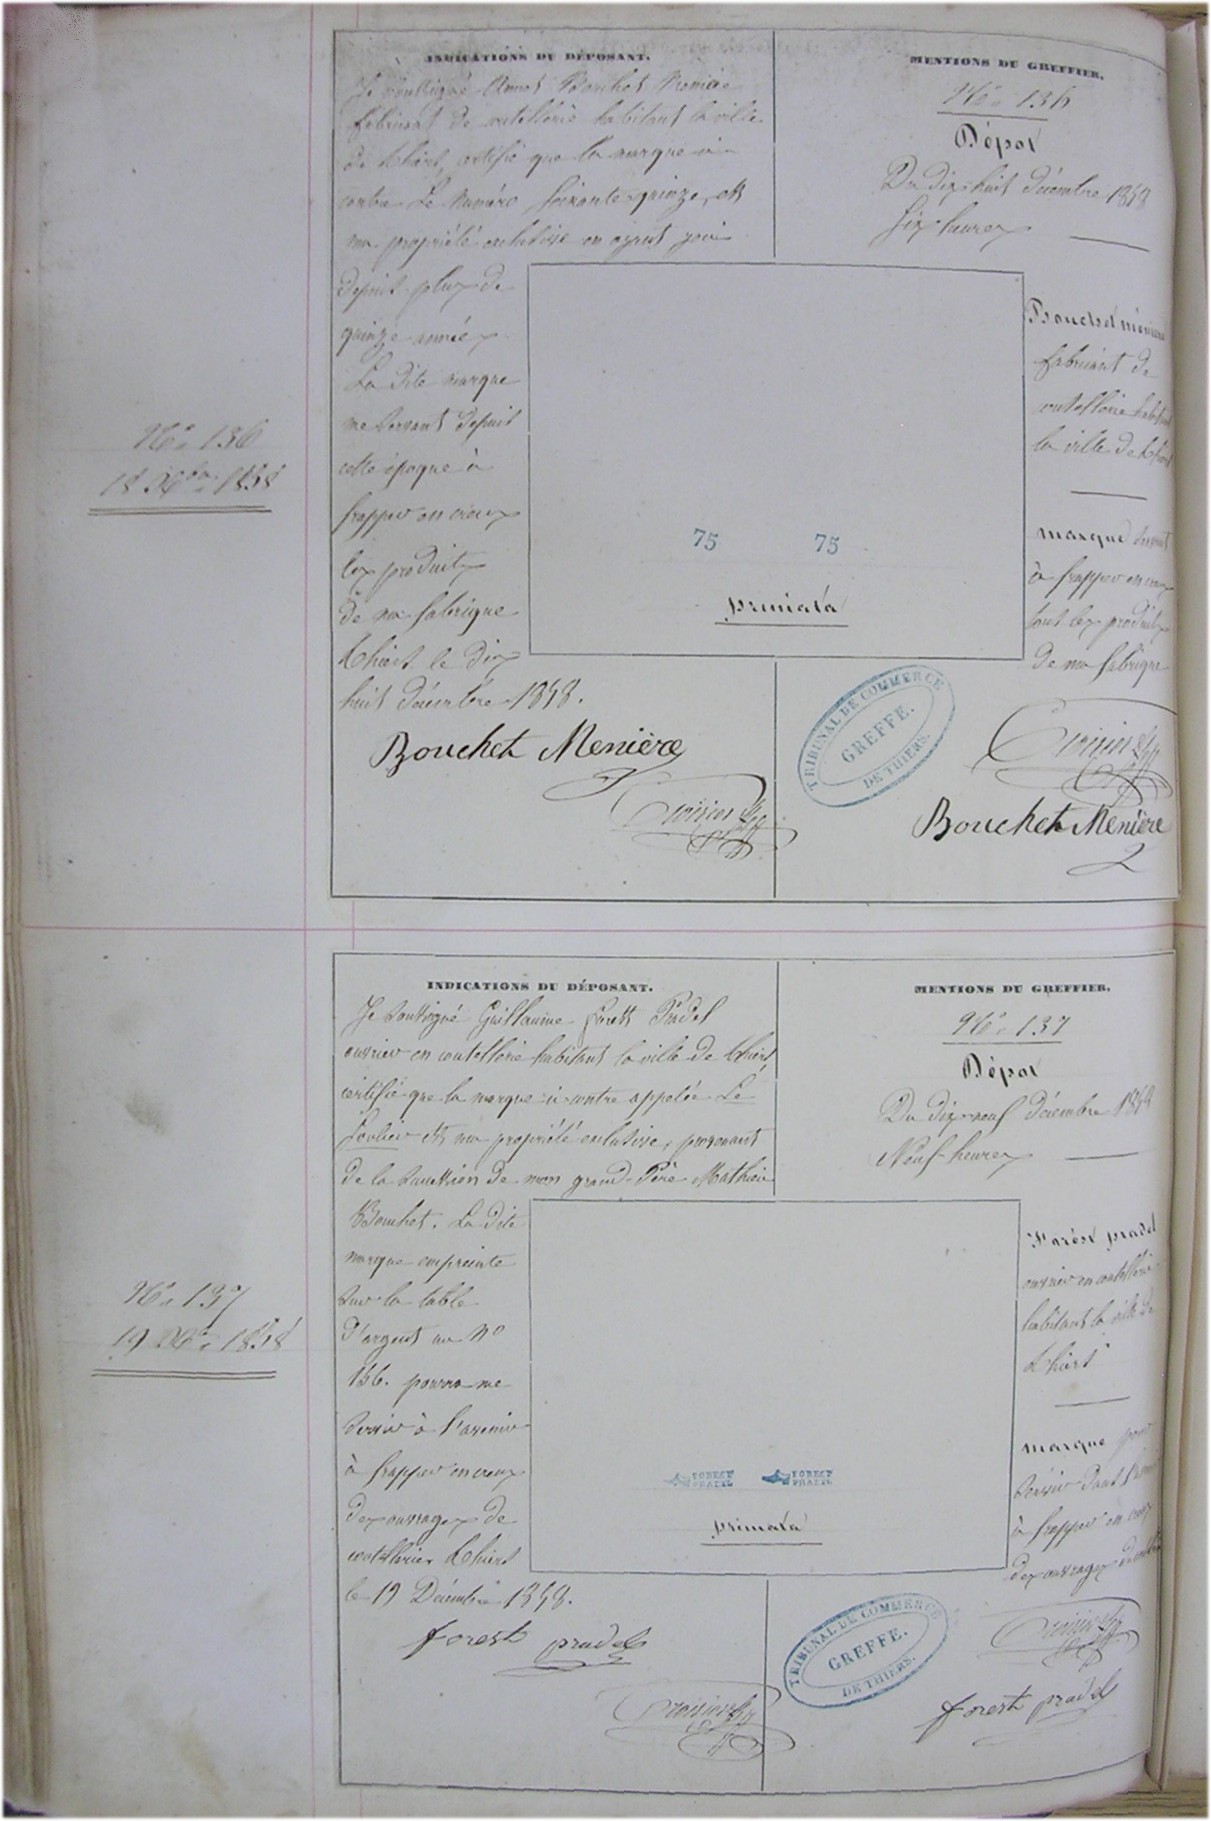 N° 136
18 Xbre 1858
INDICATIONS DU DÉPOSANT.
Je soussigné Bouchet Menière
fabricant de coutellerie habitant la ville
de Thiers, certifie que la marque ci-
contre Le Numéro Soixante quinze, est
ma propriété exclusive en ayant joui
depuis plus de
quinze années
La dite marque
me servant depuis
cette époque à
frapper en creux
les produits
de ma fabrique
Thiers le dix
huit décembre 1858.
Bouchet Menière
MENTIONS DU GREFFIER.
N° 136
Dépot
Du dix huit décembre 1858
Six heures
75 75
primata
Bouchet Menière
fabricant de
coutellerie habitant
la ville de Thiers
marque servant
à frapper en creux
tout les produits
de ma fabrique
TRIBUNAL DE COMMERCE
GREFFE.
DE THIERS.
Bouchet Menière
N° 137
19 Xbre 1858
INDICATIONS DU DÉPOSANT.
Je soussigné Guillaume Forest Pradel
ouvrier en coutellerie habitant la ville de Thiers
certifie que la marque ci-contre appelée Le
Soulier est ma propriété exclusive, provenant
de la succession de mon grand-Père Mathieu
Bouchet. La dite
marque empreinte
sur la table
d'argent au N°
156. pourra me
servir à l'avenir
à frapper en creux
des ouvrages de
coutellerie. Thiers
le 19 Décembre 1858.
forest pradel
MENTIONS DU GREFFIER.
N° 137
Dépot
Du dix-neuf décembre 1858
Neuf heures
FOREST PRADEL FOREST PRADEL
primata
Forest pradel
ouvrier en coutellerie
habitant la ville de
Thiers
marque pour
servir dans l'avenir
à frapper en creux
des ouvrages de
TRIBUNAL DE COMMERCE
GREFFE.
DE THIERS.
forest pradel